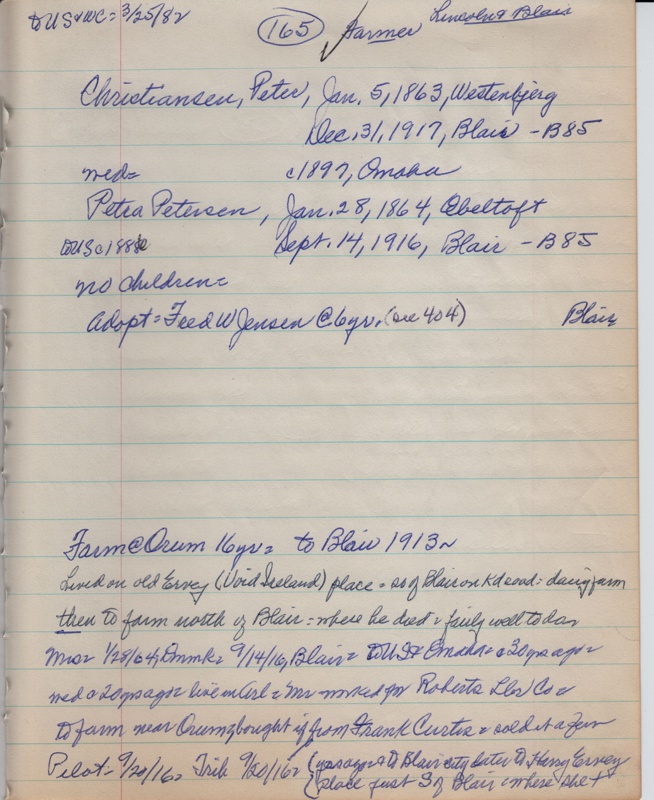 to US & WC = 3/25/82 165 Farmer Lincoln & Blair
Christiansen, Peter, Jan. 5, 1863, Westenbjerg
Dec. 31, 1917, Blair - B85
wed= c1897, Omaha
Petra Petersen, Jan. 28, 1864, Ebeltoft
to US c188 Sept. 14, 1916, Blair - B85
no children=
Adopt = Fred W Jensen @ 6yr. (see 404) Blair
Farm @ Orum 16yr = to Blair 1913~
Lived on old Ervey (Void Ireland) place = so of Blair on Kd road = dairy farm
then to farm north of Blair = where he died = fairly well to do
Mrs = 1/28/64, Dnmk = 9/14/16, Blair = to US & Omaha = c30ys ago =
wed c20ys ago = live in Arl = Mr worked for Roberts Lbr Co =
to farm near Orum, bought if from Frank Curtis = sold it a few
Pilot = 9/20/16 = Trib 9/20/16 = (yrs ago = to Blair city later to Harry Ervey
(place just S of Blair where she +